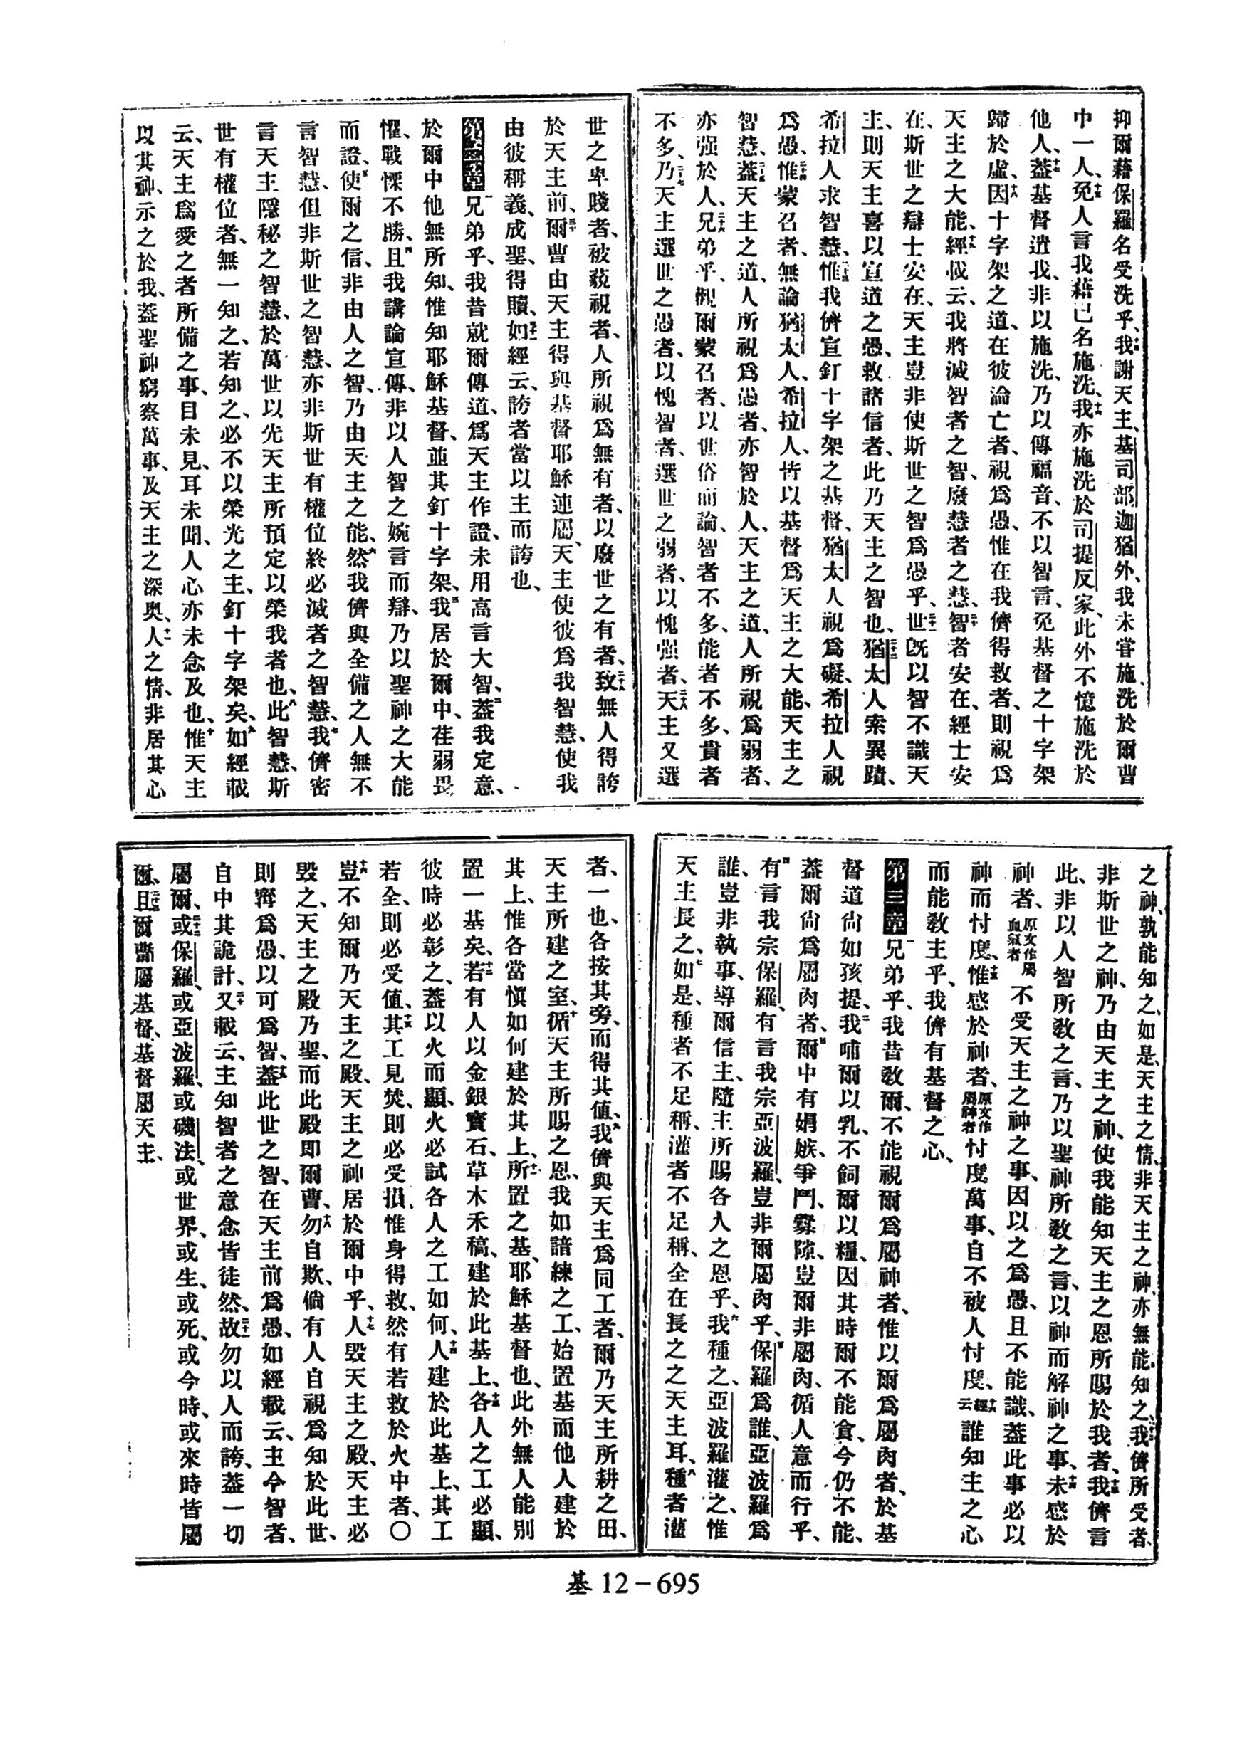 抑爾藉保羅名受洗乎、我謝天主、基司部迦猶外、我未嘗施洗於爾曹
中一人、免人言我藉己名施洗、我亦施洗於司提反家、此外不憶施洗於
他人、蓋基督遣我、非以施洗、乃以傳福音、不以智言、免基督之十字架
歸於虛、因十字架之道、在彼淪亡者、視爲愚、惟在我儕得救者、則視爲
天主之大能、經載云、我將滅智者之智、廢慧者之慧、智者安在、經士安
在、斯世之辯士安在、天主豈非使斯世之智爲愚乎、世既以智不識天
主、則天主喜以宣道之愚、救諸信者、此乃天主之智也、猶太人索異蹟、
希拉人求智慧、惟我儕宣釘十字架之基督、猶太人視爲礙、希拉人視
爲愚、惟蒙召者、無論猶太人、希拉人、皆以基督爲天主之大能、天主之
智慧、蓋天主之道、人所視爲愚者、亦智於人、天主之道、人所視爲弱者、
亦强於人、兄弟乎、視爾蒙召者、以世俗而論、智者不多、能者不多、貴者
不多、乃天主選世之愚者、以愧智者、選世之弱者、以愧强者、天主又選
世之卑賤者、被藐視者、人所視爲無有者、以廢世之有者、致無人得誇
於天主前、爾曹由天主得與基督耶穌連屬、天主使彼爲我智慧、使我
由彼稱義、成聖、得贖、如經云、誇者當以主而誇也、
第二章 兄弟乎、我昔就爾傳道、爲天主作證、未用高言大智、蓋我定意、
於爾中他無所知、惟知耶穌基督、並其釘十字架、我居於爾中、荏弱畏
懼、戰慄不勝、且我講論宣傳、非以人智之婉言而辯、乃以聖神之大能
而證、使爾之信、非由人之智、乃由天主之能、然我儕與全備之人無不
言智慧、但非斯世之智慧、亦非斯世有權位終必滅者之智慧、我儕密
言天主隱秘之智慧、於萬世以先天主所預定以榮我者也、此智慧、斯
世有權位者、無一知之、若知之、必不以榮光之主、釘十字架矣、如經載
云、天主爲愛之者所備之事、目未見、耳未聞、人心亦未念及也、惟天主
以其神、示之於我、蓋聖神窮察萬事、及天主之深奥、人之情、非居其心
之神、孰能知之、如是、天主之情、非天主之神、亦無能知之、我儕所受者、
非斯世之神、乃由天主之神、使我能知天主之恩所賜於我者、我儕言
此、非以人智所教之言、乃以聖神所教之言、以神而解神之事、未感於
神者、原文作屬血氣者不受天主之神之事、因以之爲愚、且不能識、蓋此事必以
神而忖度、惟感於神者、原文作屬神者忖度萬事、自不被人忖度、經云誰知主之心
而能教主乎、我儕有基督之心、
第三章 兄弟乎、我昔教爾、不能視爾爲屬神者、惟以爾爲屬肉者、於基
督道尚如孩提、我哺爾以乳、不飼爾以糧、因其時爾不能食、今仍不能、
蓋爾尚爲屬肉者、爾中有媢嫉、爭鬥、釁隙、豈爾非屬肉、循人意而行乎、
有言我宗保羅、有言我宗亞波羅、豈非爾屬肉乎、保羅爲誰、亞波羅爲
誰、豈非執事、導爾信主、隨主所賜各人之恩乎、我種之、亞波羅灌之、惟
天主長之、如是、種者不足稱、灌者不足稱、全在長之之天主耳、種者灌
者、一也、各按其勞、而得其值、我儕與天主爲同工者、爾乃天主所耕之田、
天主所建之室、循天主所賜之恩、我如諳練之工、始置基而他人建於
其上、惟各當愼如何建於其上、所置之基、耶穌基督也、此外無人能別
置一基矣、若有人以金銀寶石草木禾稿、建於此基上、各人之工必顯、
彼時必彰之、蓋以火而顯、火必試各人之工如何、人建於此基上、其工
若全、則必受値、其工見焚、則必受損、惟身得救、然有若救於火中者、○
豈不知爾乃天主之殿、天主之神居於爾中乎、人毀天主之殿、天主必
毀之、天主之殿乃聖、而此殿即爾曹、勿自欺、倘有人自視爲知於此世、
則寧爲愚、以可爲智、蓋此世之智、在天主前爲愚、如經載云、主令智者、
自中其詭計、又載云、主知智者之意念皆徒然、故勿以人而誇、蓋一切
屬爾、或保羅、或亞波羅、或磯法、或世界、或生、或死、或今時、或來時、皆屬
爾、且爾曹屬基督、基督屬天主、
基12－695